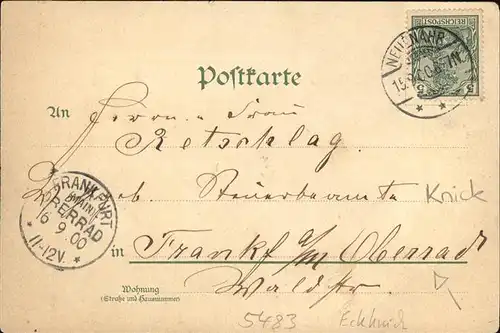 REICHSPOST
5 5
NEUENAHR
15.
7-8N.
Postkarte
An Herrn u Frau
Retschlag.
Steuerbeamte Knick
FRANKFURT
(MAIN)
OBERRAD
16 9.00
11-12V.
in Frankf a/m Oberrad
Wohnung
(Straße und Hausnummer)
Waldstr.
5483
Eckknick